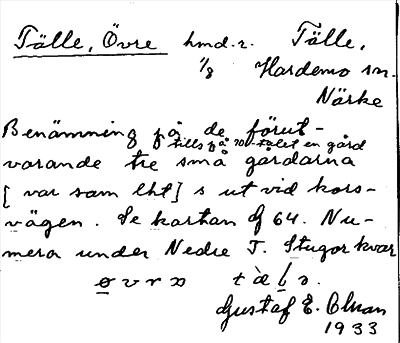 Tälle, Övre hmd. r. Tälle,
1/8 Hardemo sn.
Närke
Benämning på de förut-
tills på 70-talet en gård
varande tre små gårdarna
[ var sam lht] s ut vid kors-
vägen. Se kartan 64. Nu-
mera under Nedre T. Stugor kvar
Gustaf E. Olsson
1933